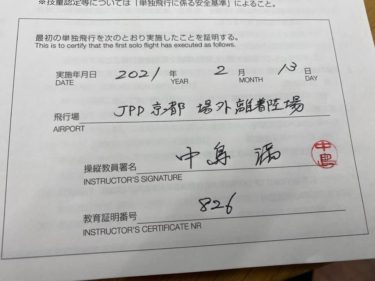 ※技量認定等については「単独飛行に係る安全基準」によること。
最初の単独飛行を次のとおり実施したことを証明する。
This is to certify that the first solo flight has executed as follows.
実施年月日 2021 年 2 月 13 日
DATE YEAR MONTH DAY
飛行場 JPD京都 場外離着陸場
AIRPORT
操縦教員署名 中島 満 中島
INSTRUCTOR'S SIGNATURE
教育証明番号 826
INSTRUCTOR'S CERTIFICATE NR